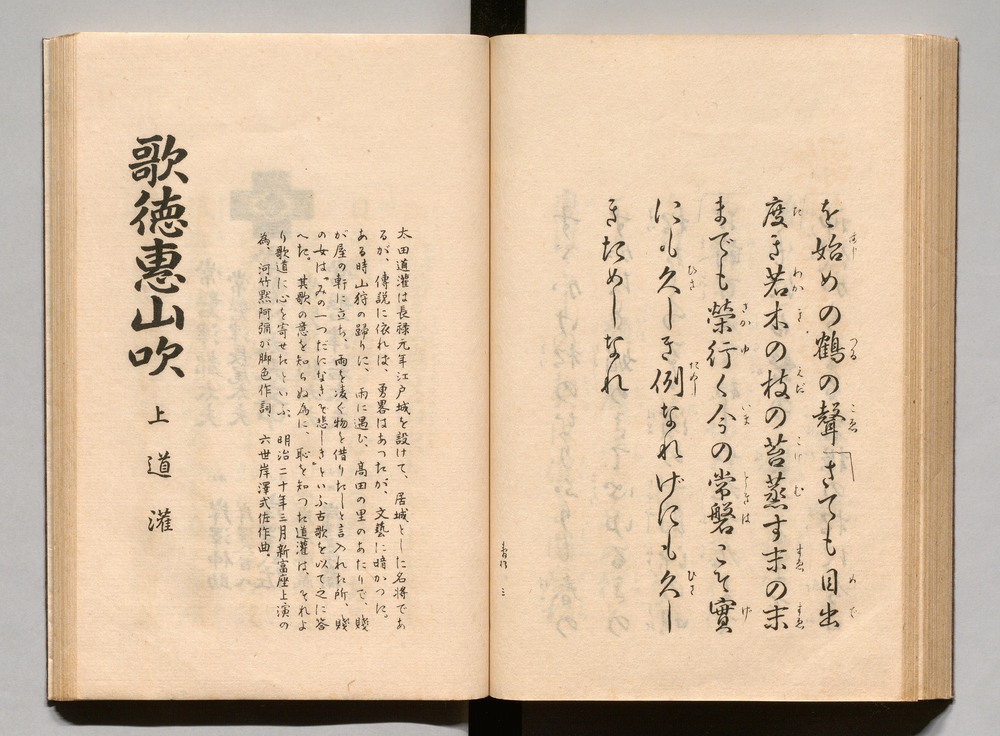 を始めの鶴の聲「さても目出
度き若木の枝の苔蒸す末の末
までも榮行く今の常磐こそ實
にも久しき例なれげにも久し
きためしなれ
三
歌徳恵山吹
上 道灌
太田道灌は長禄元年江戸城を設けて、居城とした名将であ
るが、傳説に依れば、勇畧はあつたが、文藝に暗かつた。
ある時山狩の歸りに、雨に遇ひ、高田の里のあたりで、賤
が屋の軒に立ち、雨を凌ぐ物を借りたしと言入れた所、賤
の女は〝みの一つだになきぞ悲しき〟といふ古歌を以て之に答
へた。其歌の意を知らぬ為に、恥を知つた道灌は、それよ
り歌道に心を寄せたといふ。明治二十年三月新富座上演の
為、河竹黙阿彌が脚色作詞、六世岸澤式佐作曲。